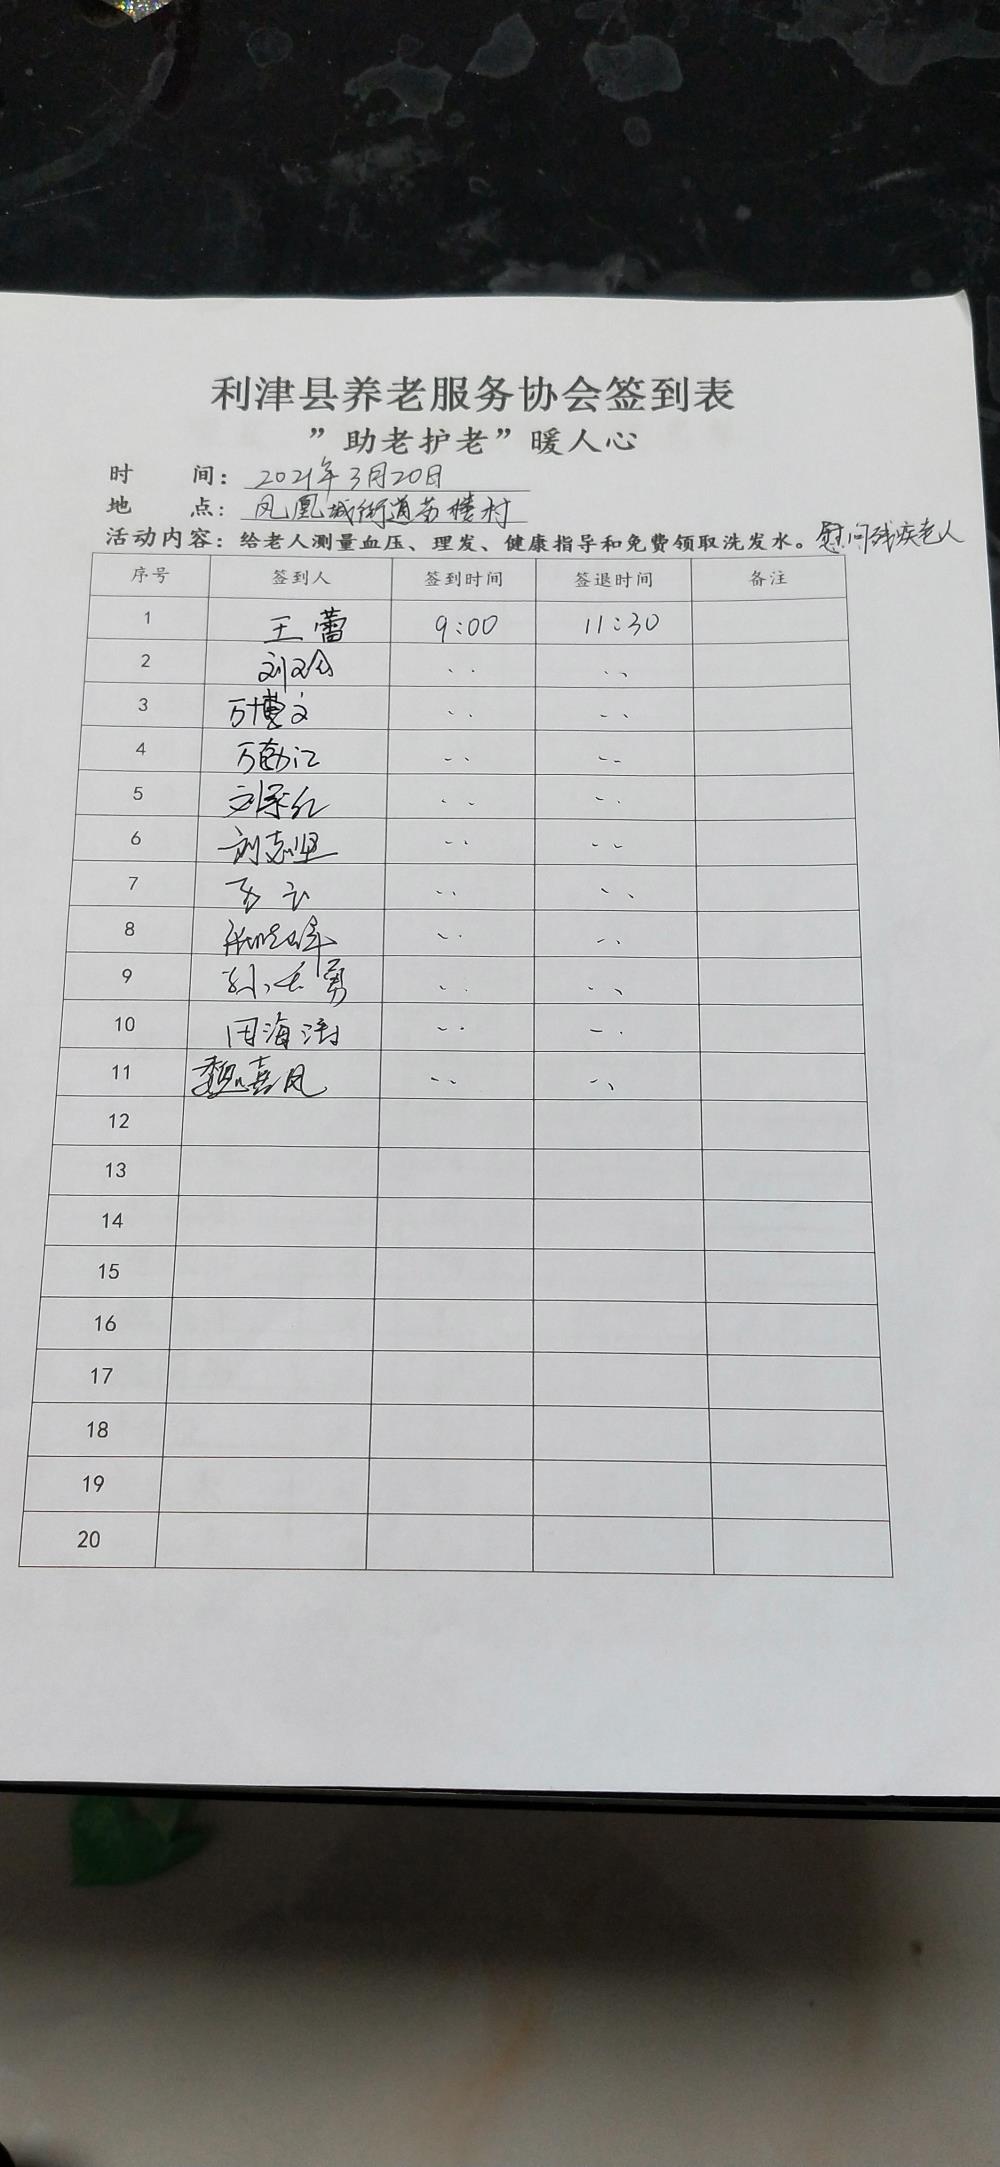 利津县养老服务协会签到表
”助老护老”暖人心
时 间：2021年3月20日
地 点：凤凰城街道苏楼村
活动内容：给老人测量血压、理发、健康指导和免费领取洗发水。慰问残疾老人
序号 签到人 签到时间 签退时间 备注
1 王蕾 9:00 11:30
2 刘
3 万博文
4 万
5 刘
6 刘志坚
7
8
9 孙 勇
10 田海涛
11 魏喜凤
12
13
14
15
16
17
18
19
20